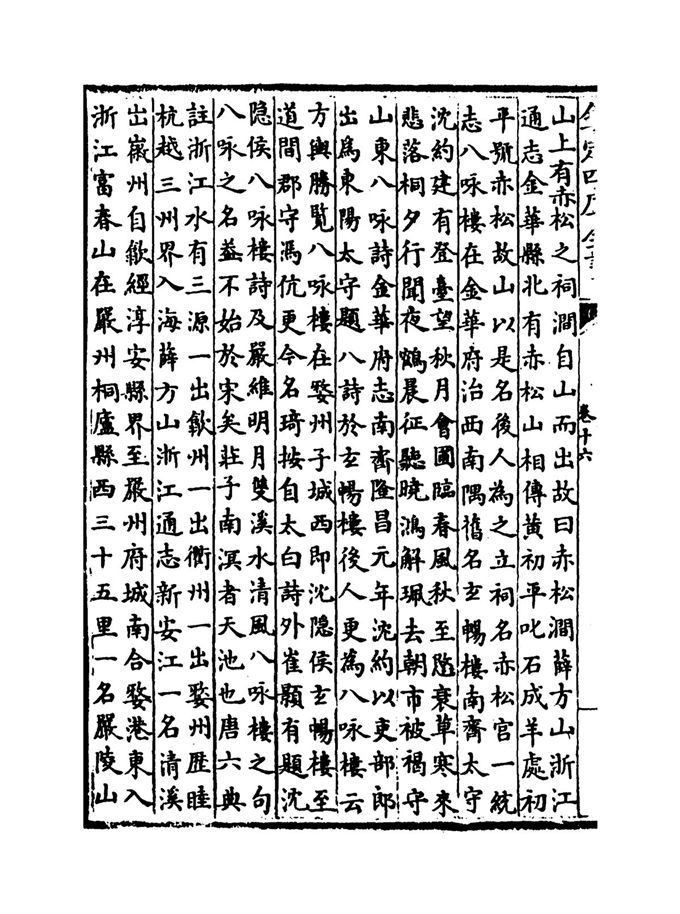 卷十六
山上有赤松之祠澗自山而出故曰赤松澗薛方山浙江
通志金華縣北有赤松山相傳黄初平叱石成羊處初
平號赤松故山以是名後人為之立祠名赤松宫一統
志八咏樓在金華府治西南隅舊名玄暢樓南齊太守
沈約建有登臺望秋月會圃臨春風秋至愍衰草寒來
悲落桐夕行聞夜鶴晨征聽曉鴻解珮去朝市被褐守
山東八咏詩金華府志南齊隆昌元年沈約以吏部郎
出為東陽太守題八詩於玄暢樓後人更為八咏樓云
方輿勝覽八咏樓在婺州子城西即沈隐侯玄暢樓至
道間郡守馮伉更今名琦按自太白詩外崔顥有題沈
隐侯八咏樓詩及嚴維明月雙溪水清風八咏樓之句
八咏之名益不始於宋矣莊子南溟者天池也唐六典
註浙江水有三源一出歙州一出衢州一出婺州歴睦
杭越三州界入海薛方山浙江通志新安江一名清溪
出嶶州自歙經淳安縣界至嚴州府城南合婺港東入
浙江富春山在嚴州桐廬縣西三十五里一名嚴陵山